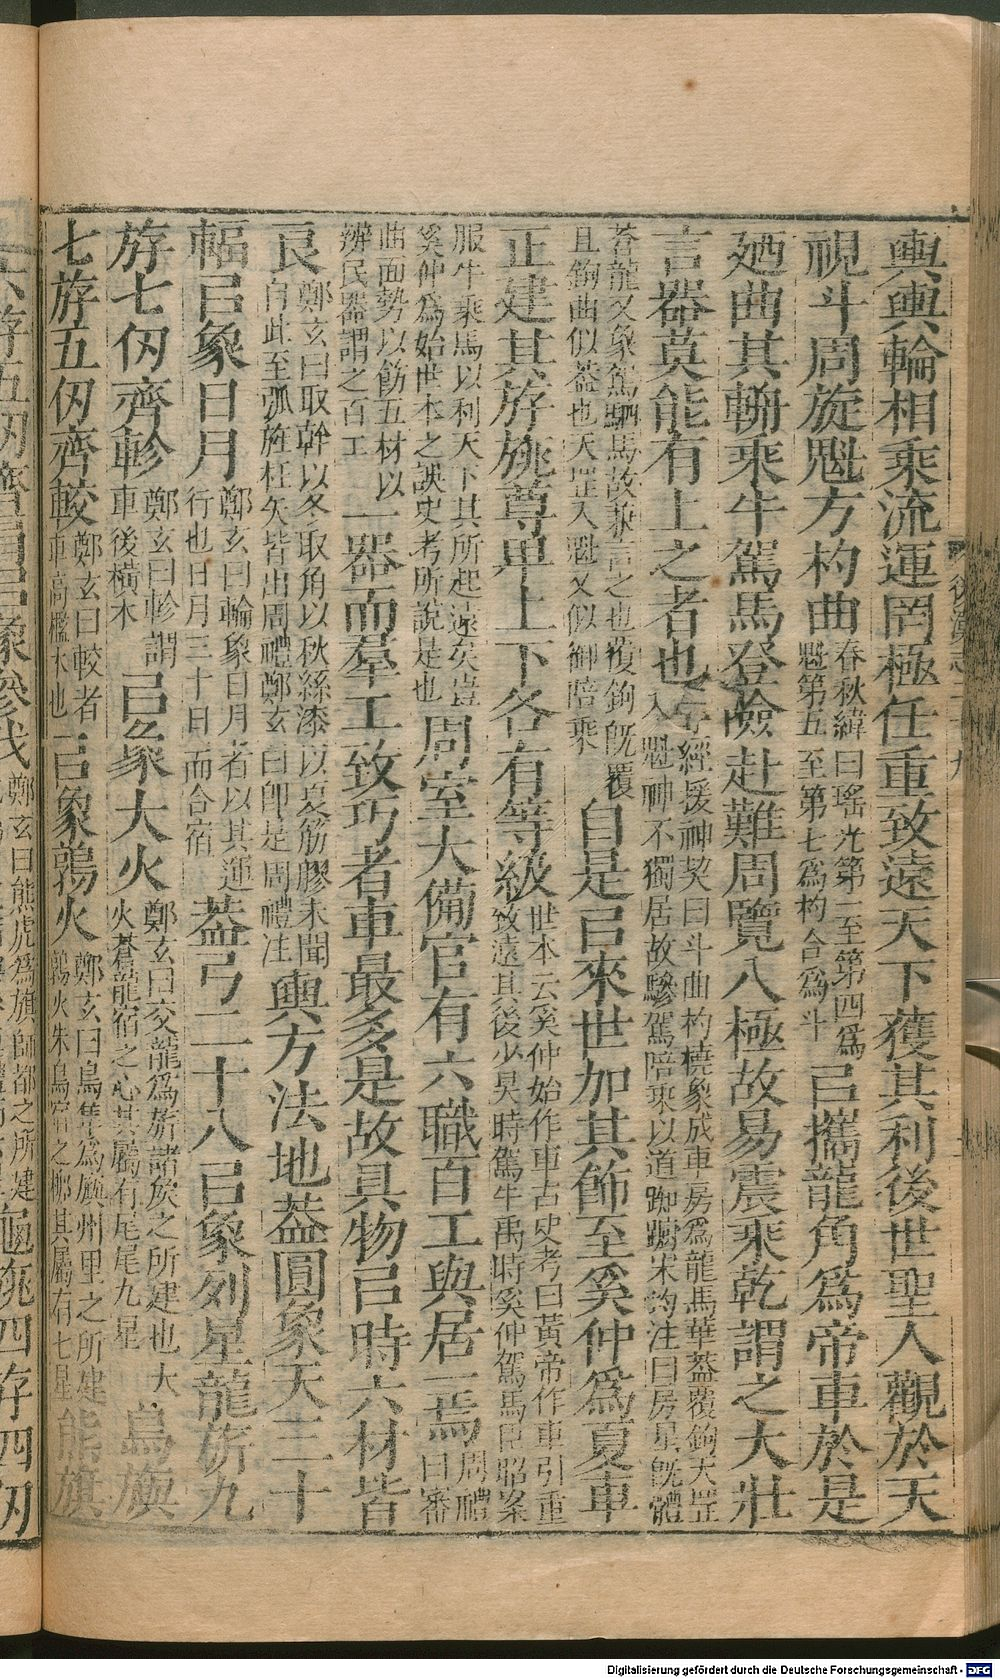 輿輿輪相乘流運罔極任重致遠天下獲其利後世聖人觀於天
視斗周旋魁方杓曲春秋緯曰瑤光第一至第四爲魁第五至第七爲杓合爲斗㠯攜龍角爲帝車於是
廼曲其輈乘牛駕馬登險赴難周覽八極故易震乘乾謂之大壯
言器莫能有上之者也孝經援神契曰斗曲杓橈象成車房爲龍馬華蓋覆鉤天罡入魁神不獨居故驂駕陪乘以道踟躕宋均注曰房星旣體
蒼龍又象駕駟馬故兼言之也覆鉤旣覆且鉤曲似蓋也天罡入魁又似御陪乘自是㠯來世加其飾至奚仲爲夏車
正建其斿旐尊卑上下各有等級世本云奚仲始作車古史考曰黃帝作車引重致遠其後少昊時駕牛禹時奚仲駕馬臣昭案
服牛乘馬以利天下其所起遠矣豈奚仲爲始世本之誤史考所說是也周室大備官有六職百工與居一焉周禮曰審
曲面勢以飭五材以辨民器謂之百工一器而羣工致巧者車最多是故具物㠯時六材皆
良鄭玄曰取幹以冬取角以秋絲漆以夏筋膠未聞自此至弧旌枉矢皆出周禮鄭玄曰卽是周禮注輿方法地蓋圓象天三十
輻㠯象日月鄭玄曰輪象日月者以其運行也日月三十日而合宿蓋弓二十八㠯象列星龍旂九
斿七仞齊軫鄭玄曰軫謂車後橫木㠯象大火鄭玄曰交龍爲旂諸侯之所建也大火蒼龍宿之心其屬有尾尾九星鳥旟
七斿五仞齊較鄭玄曰較者車高檻木也㠯象鶉火鄭玄曰鳥隼爲旟州里之所建鶉火朱鳥宿之柳其屬有七星熊旗
六斿五仞齊肩㠯象參伐鄭玄曰熊虎爲旗師都之所建龜旐四斿四仞
後漢志二十九
Digitalisierung gefördert durch die Deutsche Forschungsgemeinschaft - DFG